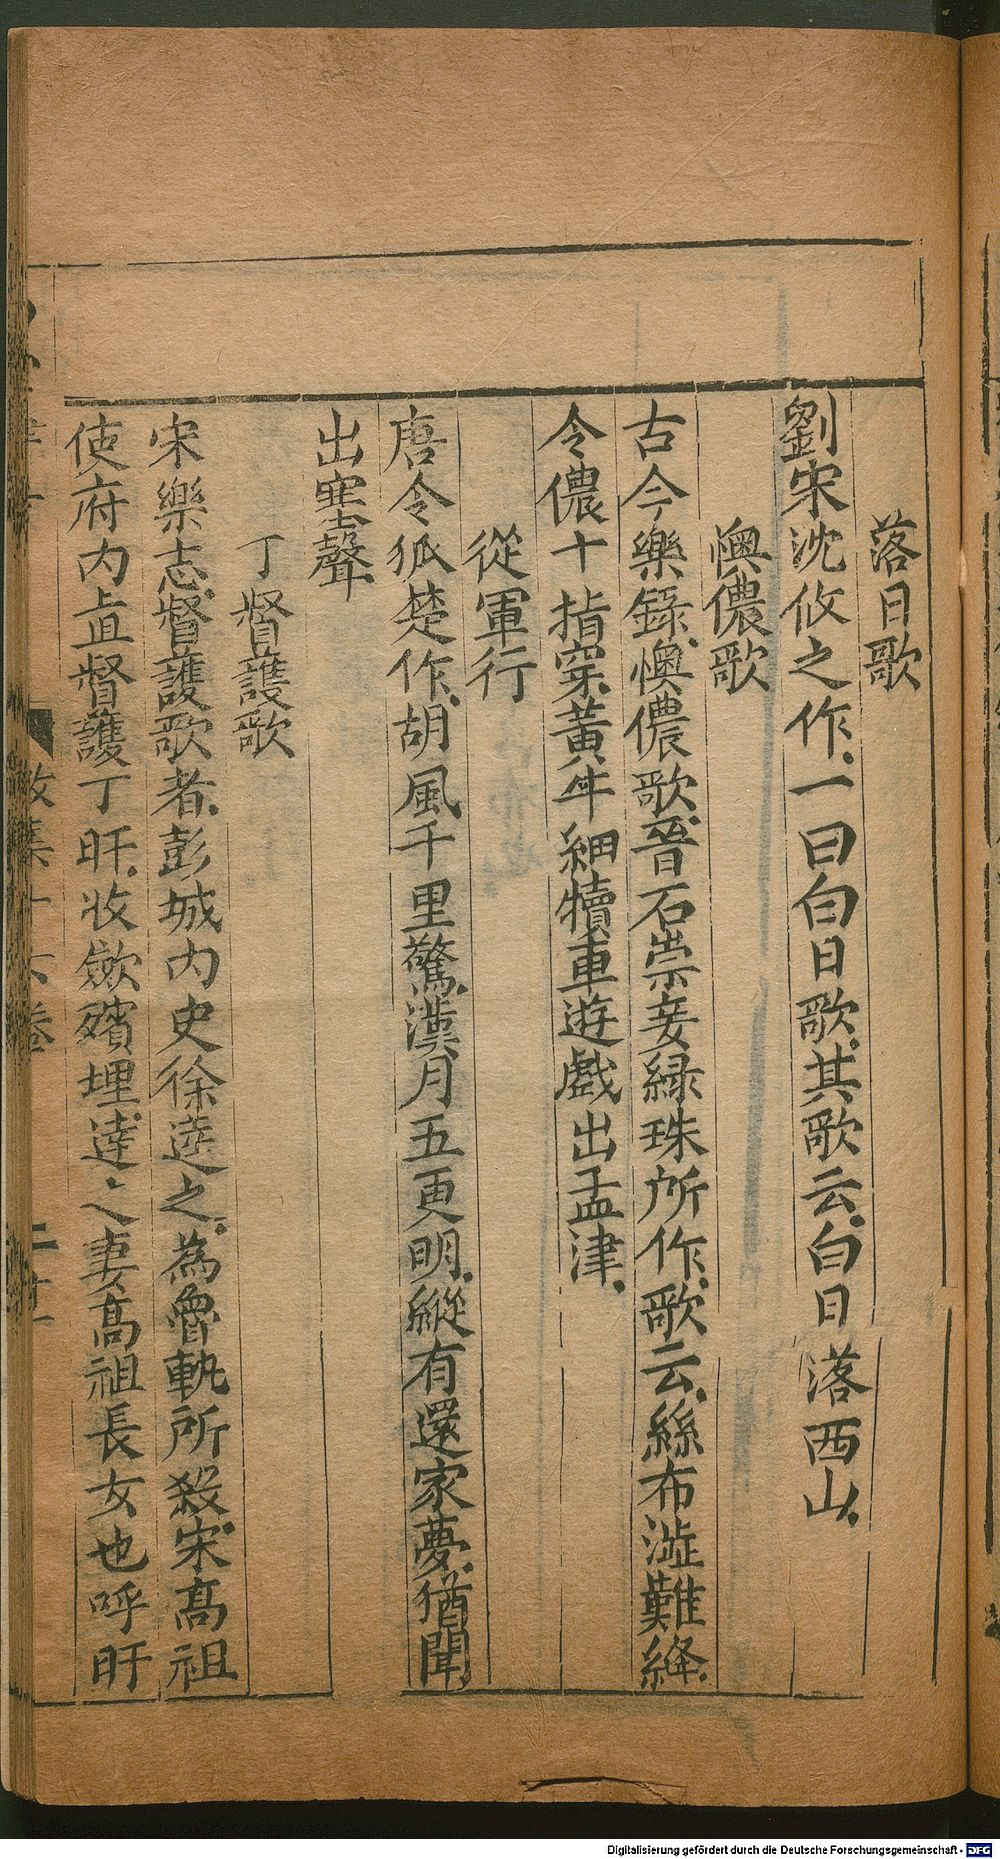 落日歌
劉宋沈攸之作、一曰白日歌、其歌云、白日落西山、
懊儂歌
古今樂錄、懊儂歌、晉石崇妾緑珠所作、歌云、絲布澁難絳、
令儂十指穿、黃牛細犢車遊戲出孟津、
從軍行
唐令狐楚作、胡風千里驚、漢月五更明、縱有還家夢、猶聞
出塞聲、
丁督護歌
宋樂志、督護歌者、彭城內史徐逵之、為魯軌所殺、宋高祖
使府內直督護丁旿、收歛殯埋、逵之妻、高祖長女也呼旿
Digitalisierung gefördert durch die Deutsche Forschungsgemeinschaft - DFG